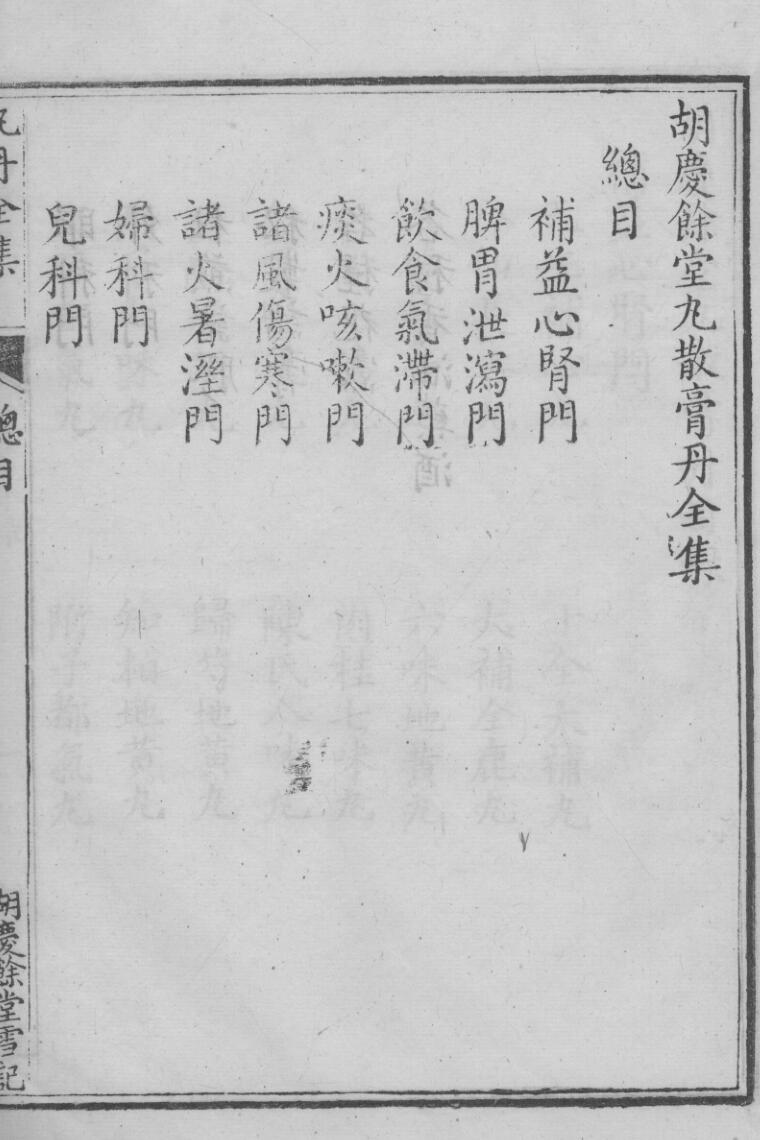 胡慶餘堂丸散膏丹全集
總目
補益心腎門
脾胃泄瀉門
飲食氣滯門
痰火咳嗽門
諸風傷寒門
諸火暑溼門
婦科門
兒科門
丹全集
總目
胡慶餘堂雪記